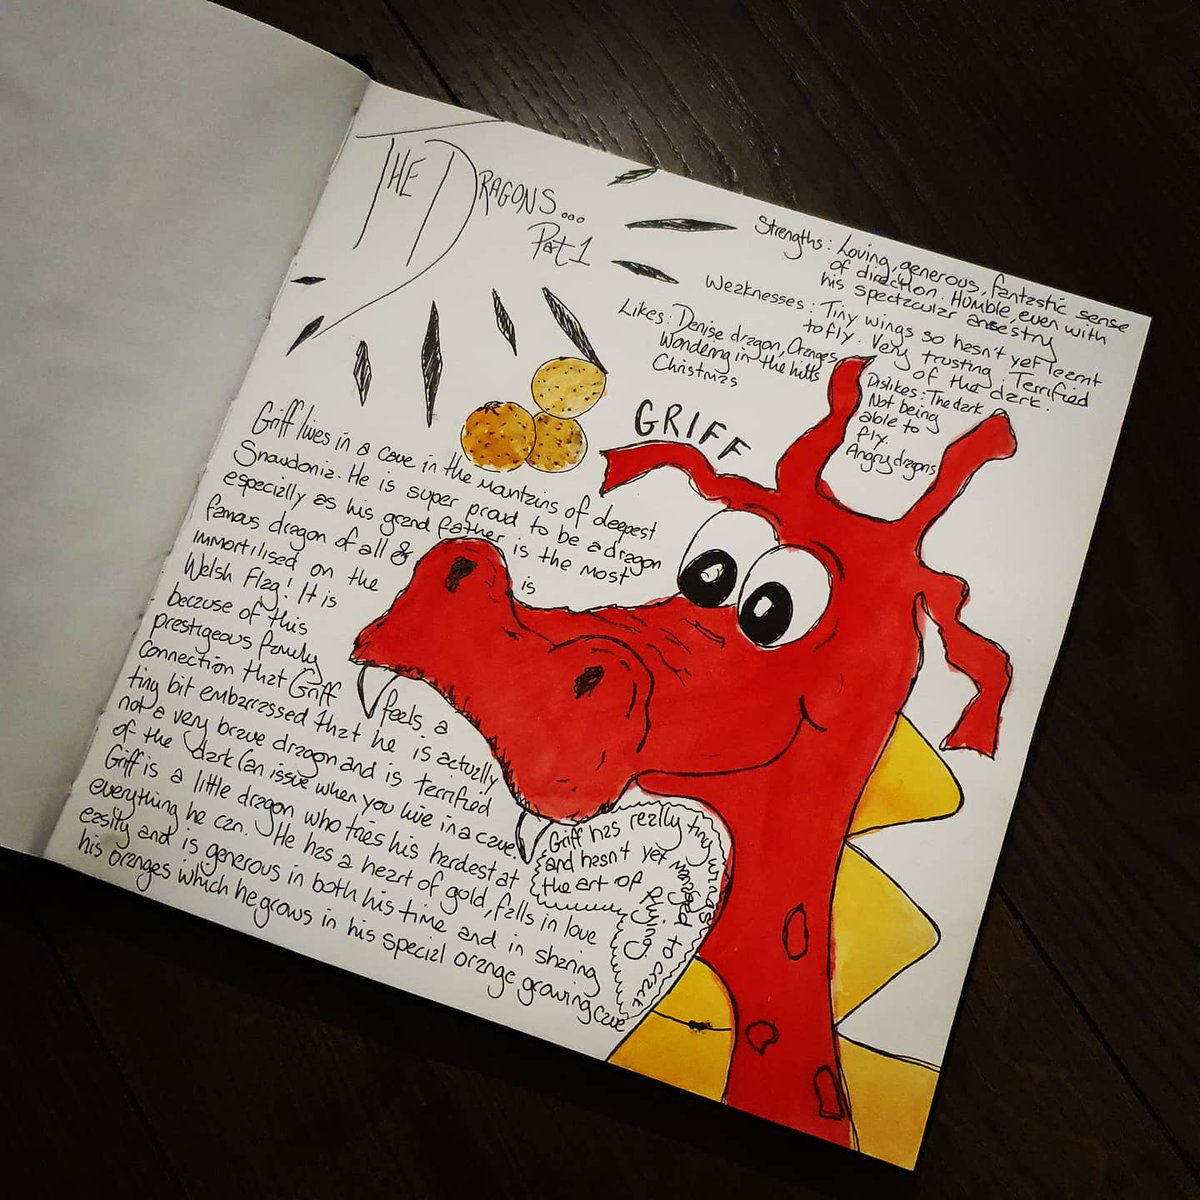 THE DRAGONS...
Part 1
Strengths: Loving, generous, fantastic sense
of direction. Humble even with
his spectacular ancestry
Weaknesses: Tiny wings so hasn't yet learnt
to fly. Very trusting. Terrified
of the dark.
Likes: Denise dragon, Oranges
Wondering in the hills
Christmas
Dislikes: The dark
Not being
able to
fly.
Angry dragons
GRIFF
Griff lives in a cave in the mountains of deepest
Snowdonia. He is super proud to be a dragon
especially as his grand father is the most
famous dragon of all & is
immortilised on the
Welsh Flag! It is
because of this
prestigeous family
connection that Griff
feels a
tiny bit embarrassed that he is actually
not a very brave dragon and is terrified
of the dark (an issue when you live in a cave.
Griff is a little dragon who tries his hardest at
everything he can. He has a heart of gold, falls in love
easily and is generous in both his time and in sharing
his oranges which he grows in his special orange growing cave
Griff has really tiny wings
and hasn't yet managed to crack
the art of flying